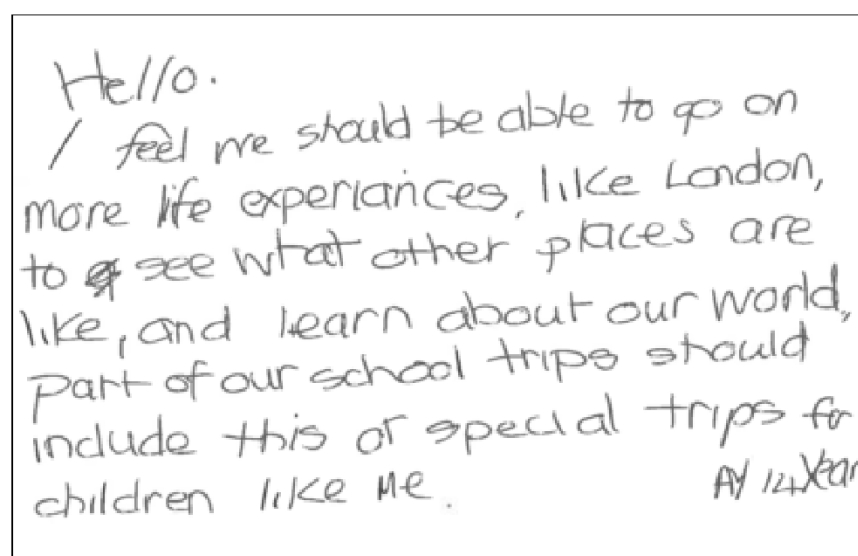 Hello.
I feel we should be able to go on
more life experiances, like London,
to see what other places are
like, and learn about our world,
part of our school trips should
include this or special trips for
children like me.
AY 14 Year